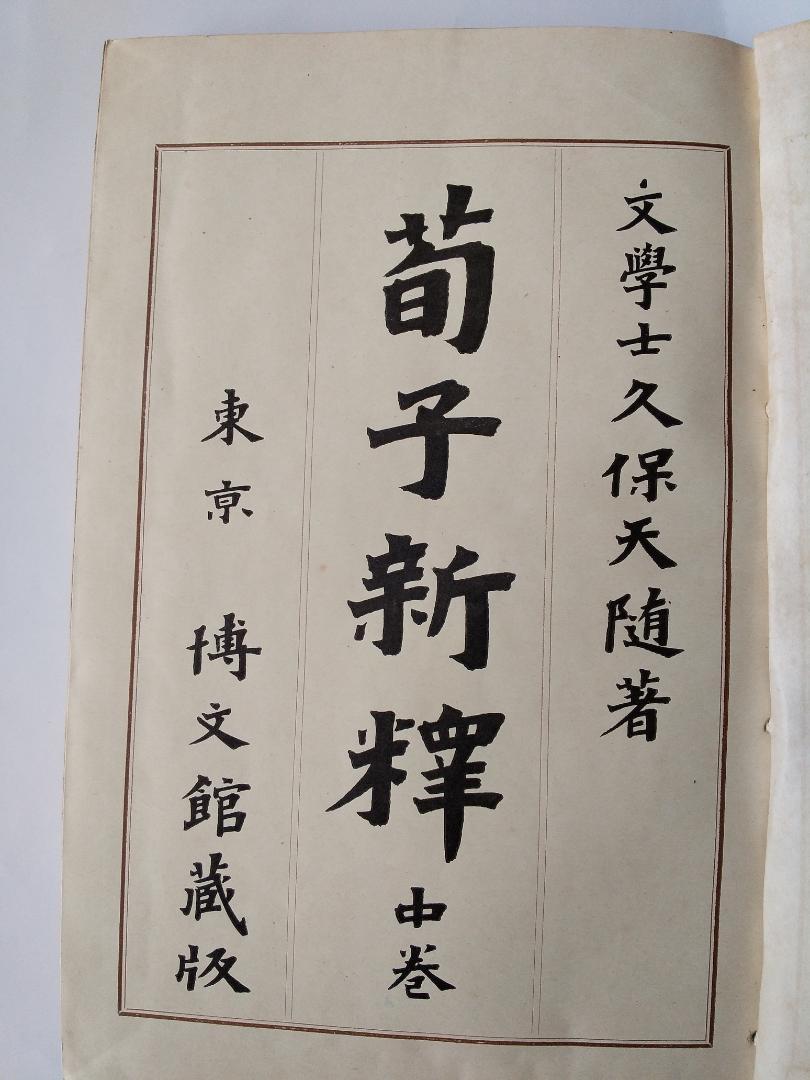 文學士久保天随著
荀子新釋 中卷
東京 博文館藏版